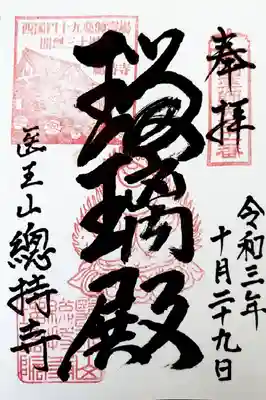 奉拝
令和三年
十月二十九日
瑠璃殿
医王山 總持寺
西国四十九薬師霊場